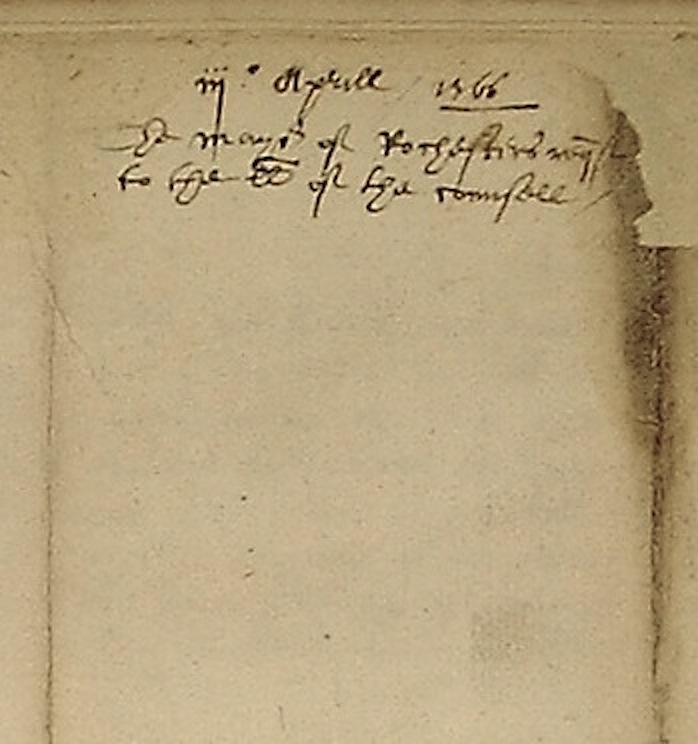 iij.° Aprill / 1566
The mayr of Rochesters
to the ll of the counsell /